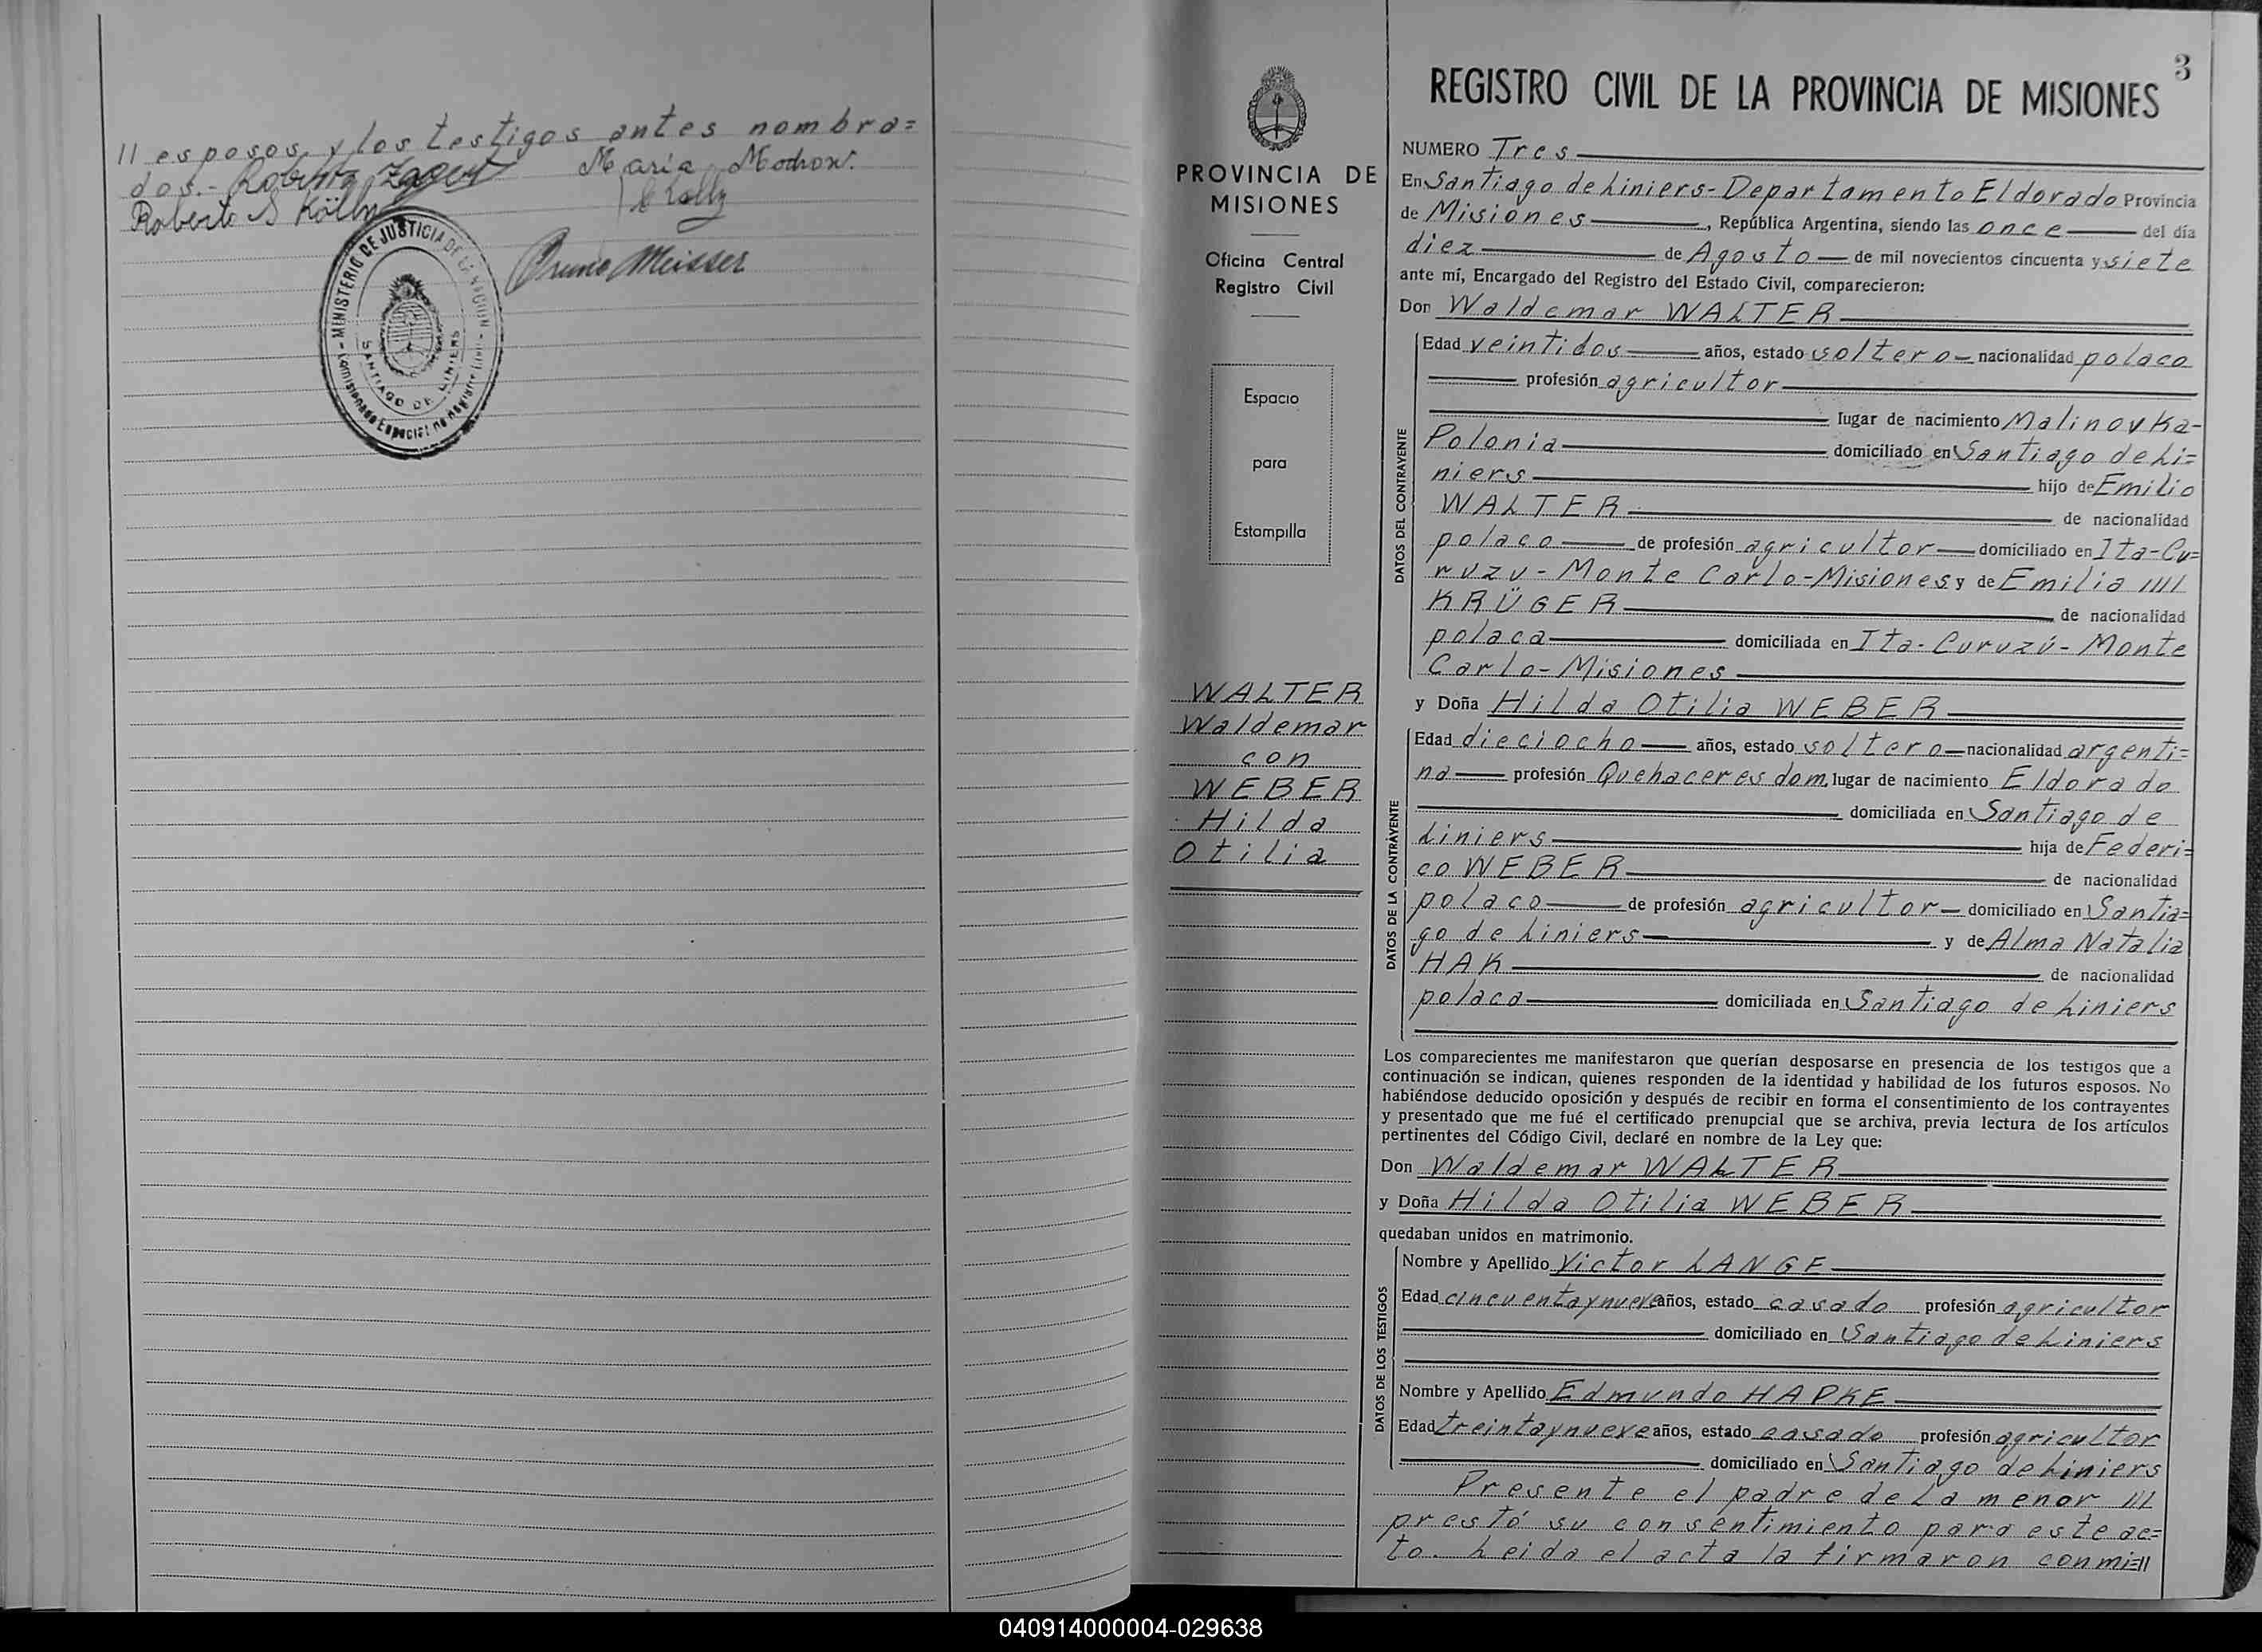 11 esposos y los testigos antes nombra=
dos.- Roberto María Modrow.
Roberto S Kölln
Bruno Meisser
MINISTERIO DE JUSTICIA DE LA NACION
SANTIAGO DE LINIERS
3
PROVINCIA DE
MISIONES
Oficina Central
Registro Civil
Espacio
para
Estampilla
WALTER
Waldemar
con
WEBER
Hilda
Otilia
REGISTRO CIVIL DE LA PROVINCIA DE MISIONES
NUMERO Tres
En Santiago de Liniers-Departamento Eldorado Provincia
de Misiones, República Argentina, siendo las once del día
diez de Agosto de mil novecientos cincuenta y siete
ante mí, Encargado del Registro del Estado Civil, comparecieron:
Don Waldemar WALTER
DATOS DEL CONTRAYENTE
Edad veintidos años, estado soltero nacionalidad polaco
profesión agricultor
lugar de nacimiento Malinovka-
Polonia domiciliado en Santiago de Li=
niers hijo de Emilio
WALTER de nacionalidad
polaco de profesión agricultor domiciliado en Ita-Cu=
ruzu-Monte Carlo-Misiones y de Emilia ////
KRÜGER de nacionalidad
polaca domiciliada en Ita-Curuzú-Monte
Carlo-Misiones
y Doña Hilda Otilia WEBER
DATOS DE LA CONTRAYENTE
Edad dieciocho años, estado soltero nacionalidad argenti=
na profesión Quehaceres dom. lugar de nacimiento Eldorado
domiciliada en Santiago de
Liniers hija de Federi=
co WEBER de nacionalidad
polaco de profesión agricultor domiciliado en Santia=
go de Liniers y de Alma Natalia
HAK de nacionalidad
polaca domiciliada en Santiago de Liniers
Los comparecientes me manifestaron que querían desposarse en presencia de los testigos que a
continuación se indican, quienes responden de la identidad y habilidad de los futuros esposos. No
habiéndose deducido oposición y después de recibir en forma el consentimiento de los contrayentes
y presentado que me fué el certificado prenupcial que se archiva, previa lectura de los artículos
pertinentes del Código Civil, declaré en nombre de la Ley que:
Don Waldemar WALTER
y Doña Hilda Otilia WEBER
quedaban unidos en matrimonio.
DATOS DE LOS TESTIGOS
Nombre y Apellido Victor LANGE
Edad cincuenta y nueve años, estado casado profesión agricultor
domiciliado en Santiago de Liniers
Nombre y Apellido Edmundo HAPKE
Edad treinta y nueve años, estado casado profesión agricultor
domiciliado en Santiago de Liniers
Presente el padre de La menor ///
prestó su consentimiento para este ac=
to. Leida el acta la firmaron conmi=//
040914000004-029638